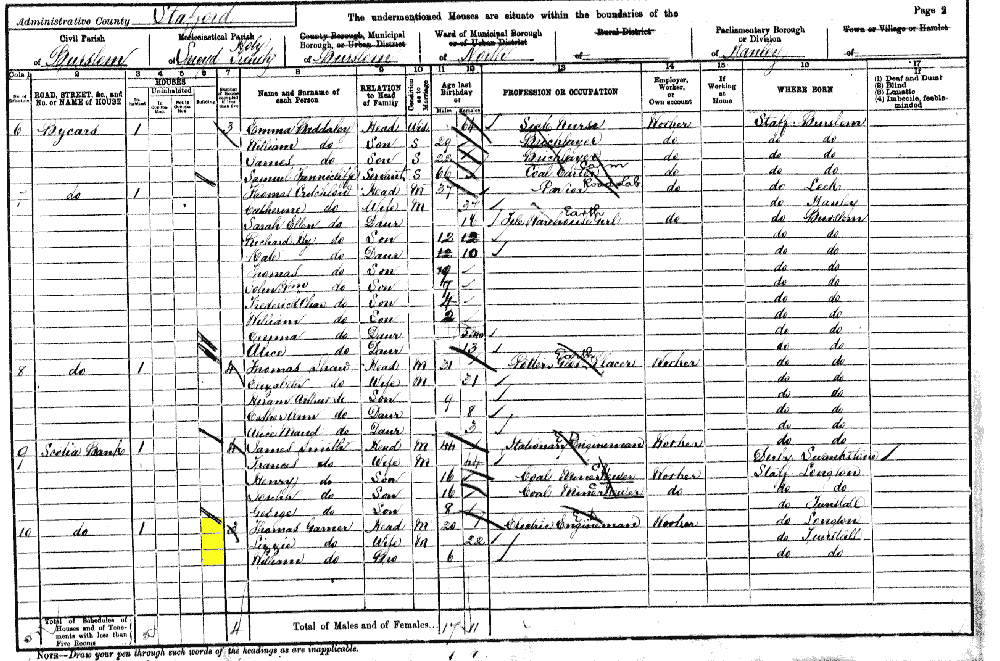 Administrative County Stafford
The undermentioned Houses are situate within the boundaries of the
Page 2
Civil Parish of Burslem
Ecclesiastical Parish of Holy Trinity
County Borough, Municipal Borough, or Urban District of Burslem
Ward of Municipal Borough or of Urban District of North
Rural District of
Parliamentary Borough or Division of Hanley
Town or Village or Hamlet of
Cols. 1 2 3 4 5 6 7 8 9 10 11 12 13 14 15 16 17
No. of Schedule
ROAD, STREET, &c., and No. or NAME of HOUSE
HOUSES
Uninhabited
Building
Name and Surname of each Person
RELATION to Head of Family
Condition as to Marriage
Age last Birthday of
Males Females
PROFESSION OR OCCUPATION
Employer, worker, or Own account
If Working at Home
WHERE BORN
If
(1) Deaf and Dumb
(2) Blind
(3) Lunatic
(4) Imbecile, feeble-minded
6 Bycars 1 3 Emma Head Wid. 64 Sick Nurse Worker Staf Burslem
William do Son S 29 Bricklayer do do do
James do Son S 22 Bricklayer do do do
Samuel Servant S 66 Coal Carter do do do
7 do 1 Thomas Critchlow Head M 37 Road Lab do do Leek
Catherine do Wife M 37 do Hanley
Sarah Ellen do Daur 14 Tile Warehouse Girl do do Burslem
Richard Hy do Son 12 do do
Kate do Daur 10 do do
Thomas do Son 9 do do
John Wm do Son 7 do do
Frederick Chas do Son 4 do do
William do Son 2 do do
Emma do Daur do do
Alice do Daur 13 do do
8 do 1 4 Thomas Shaw Head M 31 Potter Placer Worker do do
Elizabeth do Wife M 31 do do
Hiram Arthur do Son 9 do do
Esther Ann do Daur 8 do do
Alice Maud do Daur 3 do do
9 Scotia Bank 1 4 James Smith Head M 44 Stationary Engineman Worker do do
Frances do Wife M 44 Derby Swadlincote
Henry do Son 16 Coal Miner Worker Staf Longton
Joseph do Son 16 Coal Miner do do do
George do Son 8 do Tunstall
10 do 1 2 Thomas Garner Head M 20 Electric Engineman Worker do Longton
Lizzie do Wife M 22 do Tunstall
William do Bro 6 do do
5 Total of Schedules of Houses and of Tenements with less than Five Rooms 5 4 Total of Males and of Females... 17 11
NOTE—Draw your pen through such words of the headings as are inapplicable.